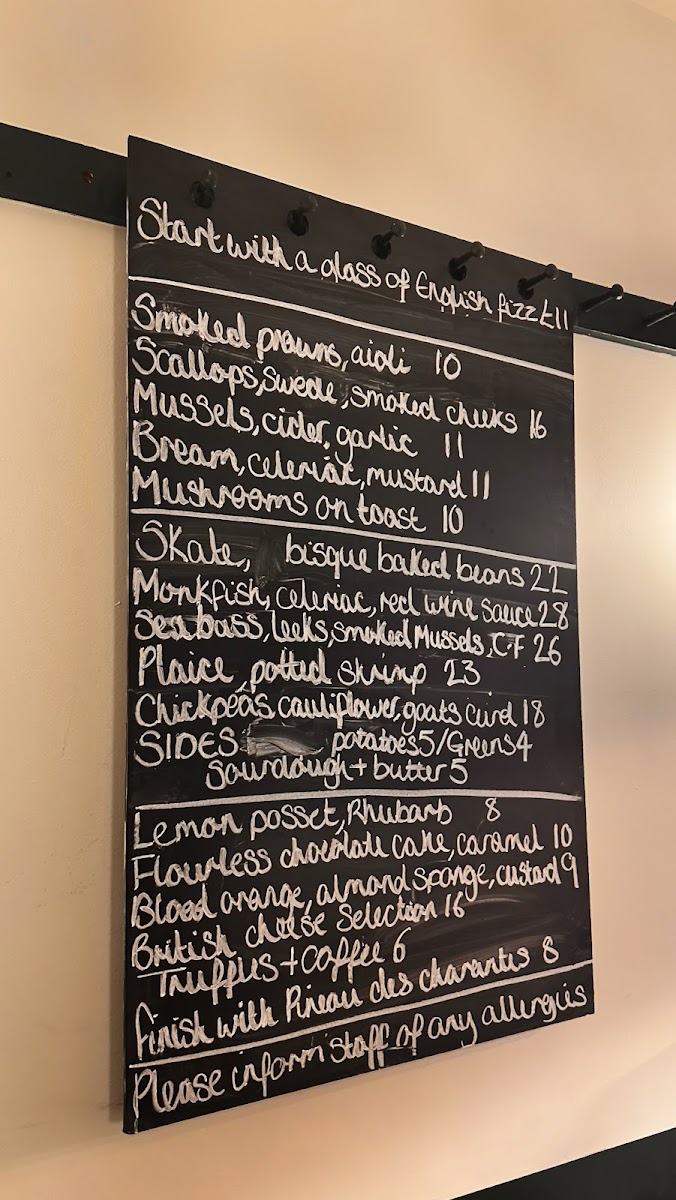 Start with a glass of English fizz £11
Smoked prawns, aioli 10
Scallops, swede, smoked cheeks 16
Mussels, cider, garlic 11
Bream, celeriac, mustard 11
Mushrooms on toast 10
Skate, bisque baked beans 22
Monkfish, celeriac, red wine sauce 28
Sea bass, leeks, smoked Mussels, C.F 26
Plaice, potted shrimp 23
Chickpeas, cauliflower, goats curd 18
SIDES potatoes 5/Greens 4
Sourdough + butter 5
Lemon posset, Rhubarb 8
Flourless chocolate cake, caramel 10
Blood orange, almond sponge, custard 9
British cheese Selection 16
Truffles + Coffee 6
Finish with Pineau des charantes 8
Please inform staff of any allergies